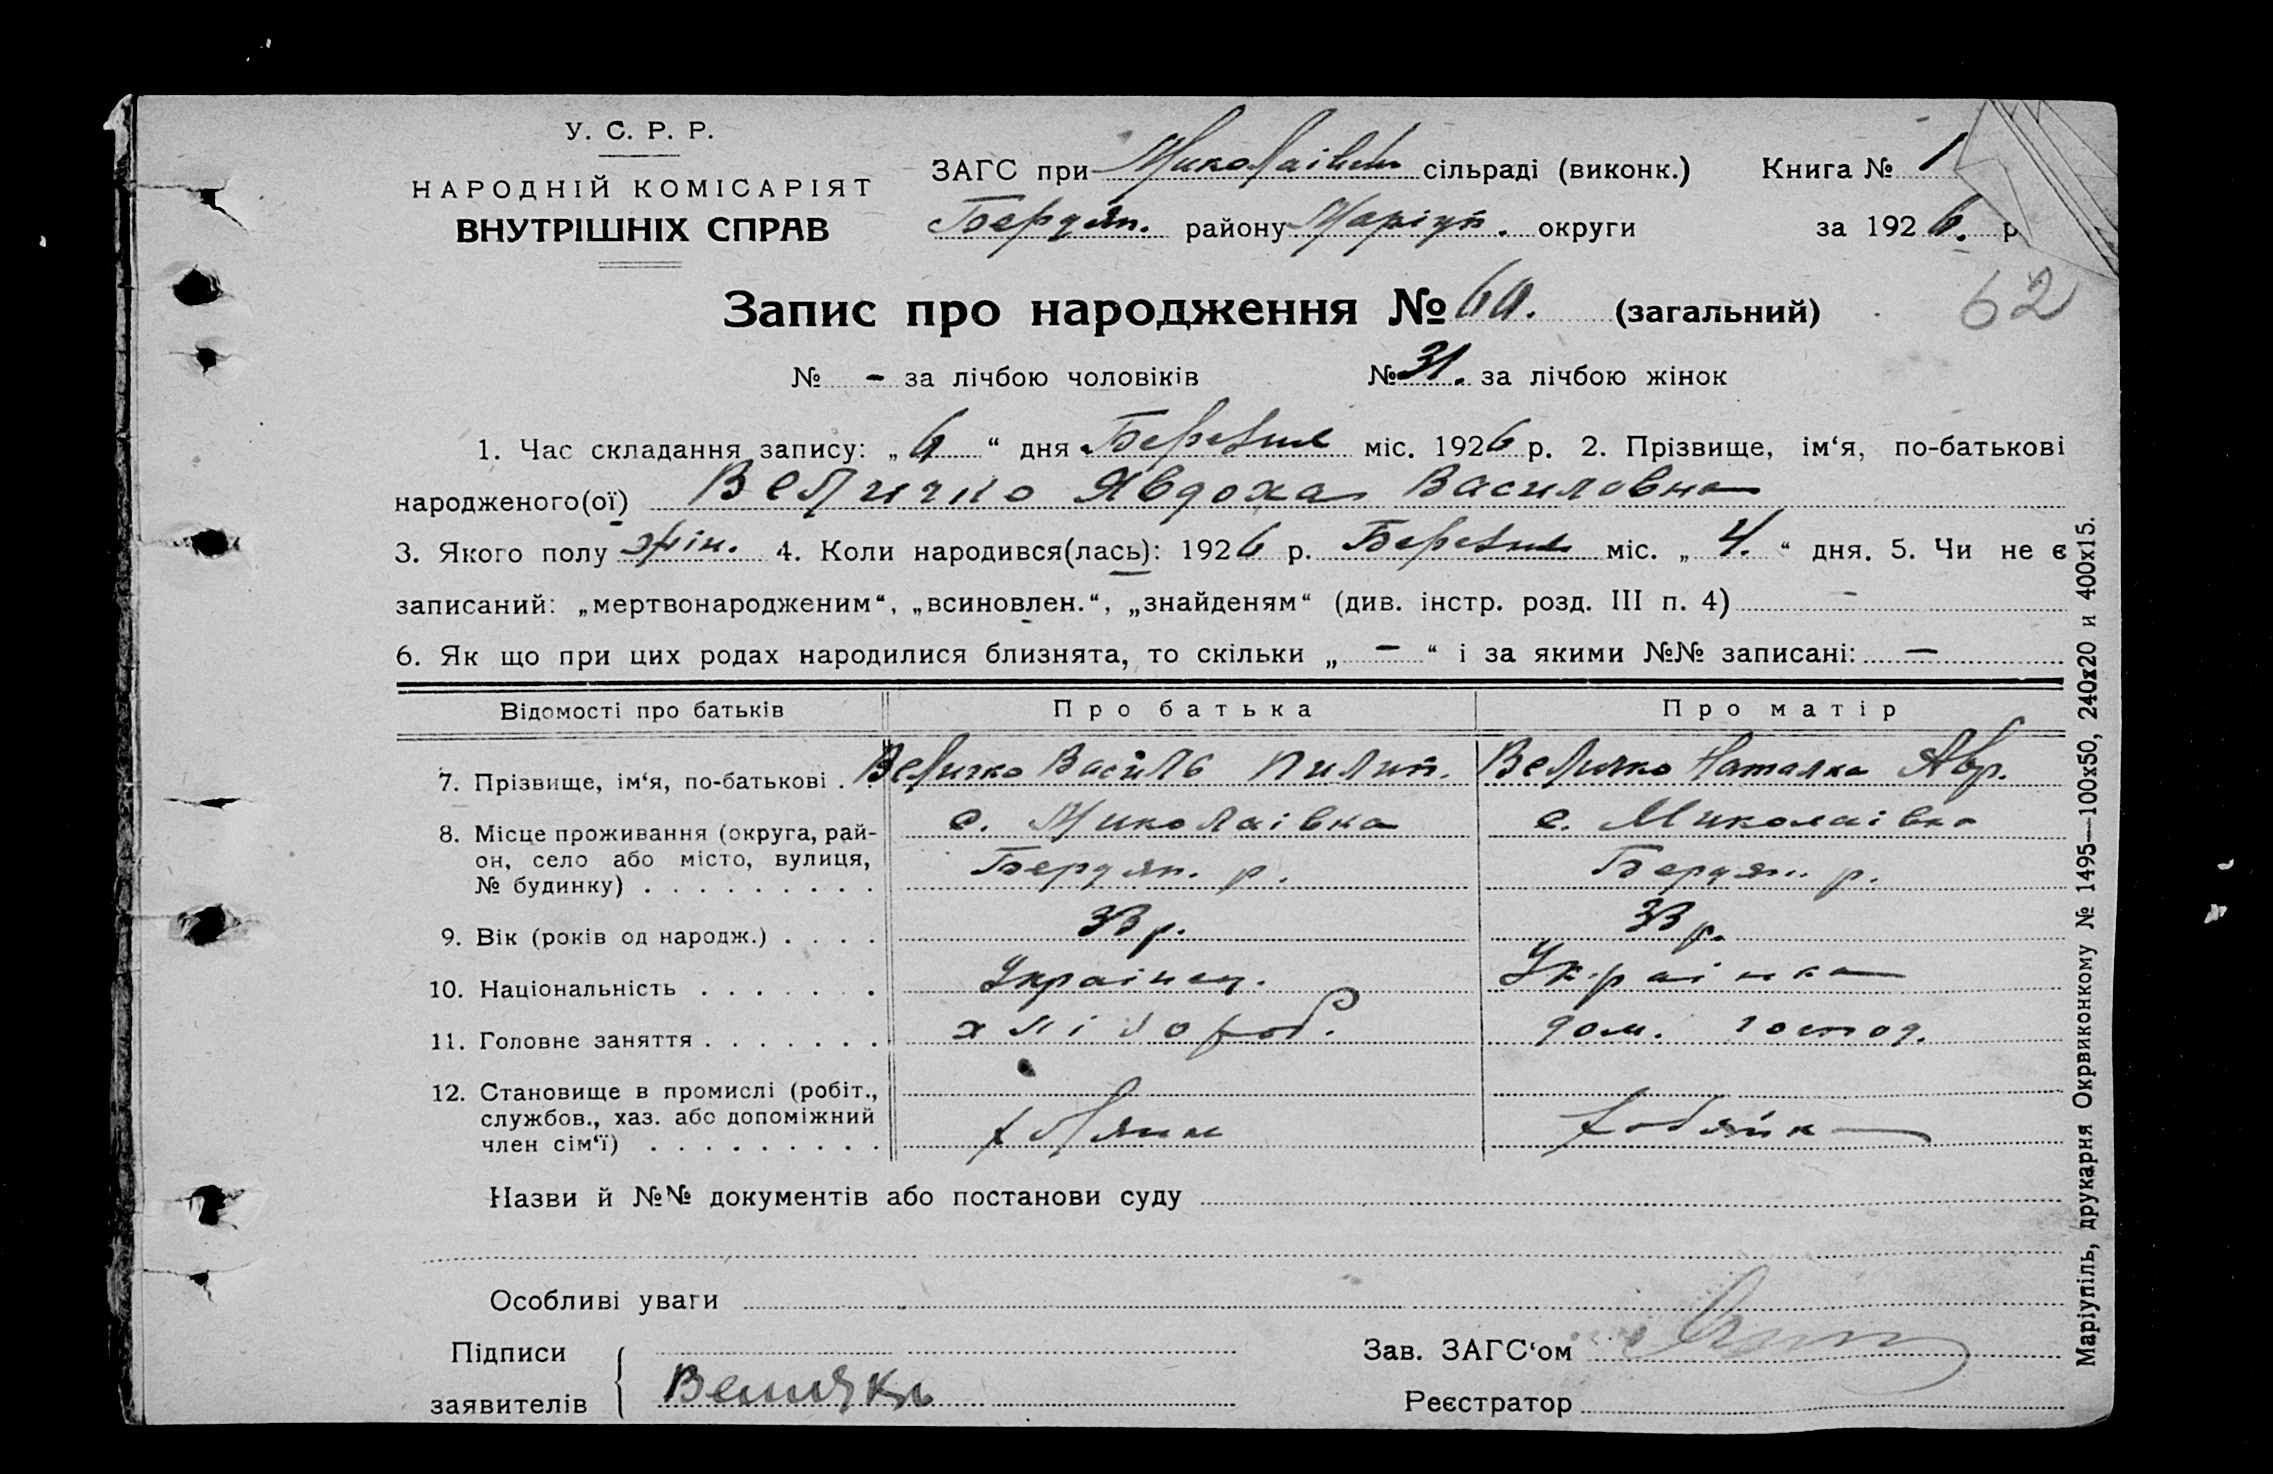 У. С. Р. Р.
НАРОДНІЙ КОМІСАРІЯТ
ВНУТРІШНІХ СПРАВ
ЗАГС при Миколаівській сільраді (виконк.) Книга № 1
Бердян. району Маріуп. округи за 1926. р
Запис про народження № 60. (загальний)
62
№ - за лічбою чоловіків № 31. за лічбою жінок
1. Час складання запису: „ 6 “ дня Березня міс. 1926 р. 2. Прізвище, ім‘я, по-батькові
народженого(ої) Величко Явдоха Василовна
3. Якого полу жін. 4. Коли народився(лась): 1926 р. Березня міс. „ 4. “ дня. 5. Чи не є
записаний: „мертвонародженим“, „всиновлен.“, „знайденям“ (див. інстр. розд. III п. 4) -
6. Як що при цих родах народилися близнята, то скільки „ - “ і за якими №№ записані: —
Відомості про батьків Про батька Про матір
7. Прізвище, ім‘я, по-батькові . . Величко Василь Пилип. Величко Наталка Авр.
8. Місце проживання (округа, рай-
он, село або місто, вулиця,
№ будинку) . . . . . . . . .
с. Миколаівка с. Миколаівка
Бердян. р. Бердян. р.
9. Вік (років од народж.) . . . . 33 р. 33 р.
10. Національність . . . . . . . Украінец. Украінка
11. Головне заняття . . . . . . . хлібороб. дом. господ.
12. Становище в промислі (робіт.,
службов., хаз. або допоміжний
член сім‘ї) . . . . . . . . .
Назви й №№ документів або постанови суду
Особливі уваги
Підписи
заявителів
Величко
Зав. ЗАГС‘ом
Реєстратор
Маріупіль, друкарня Окрвиконкому № 1495—100х50, 240х20 и 400х15.